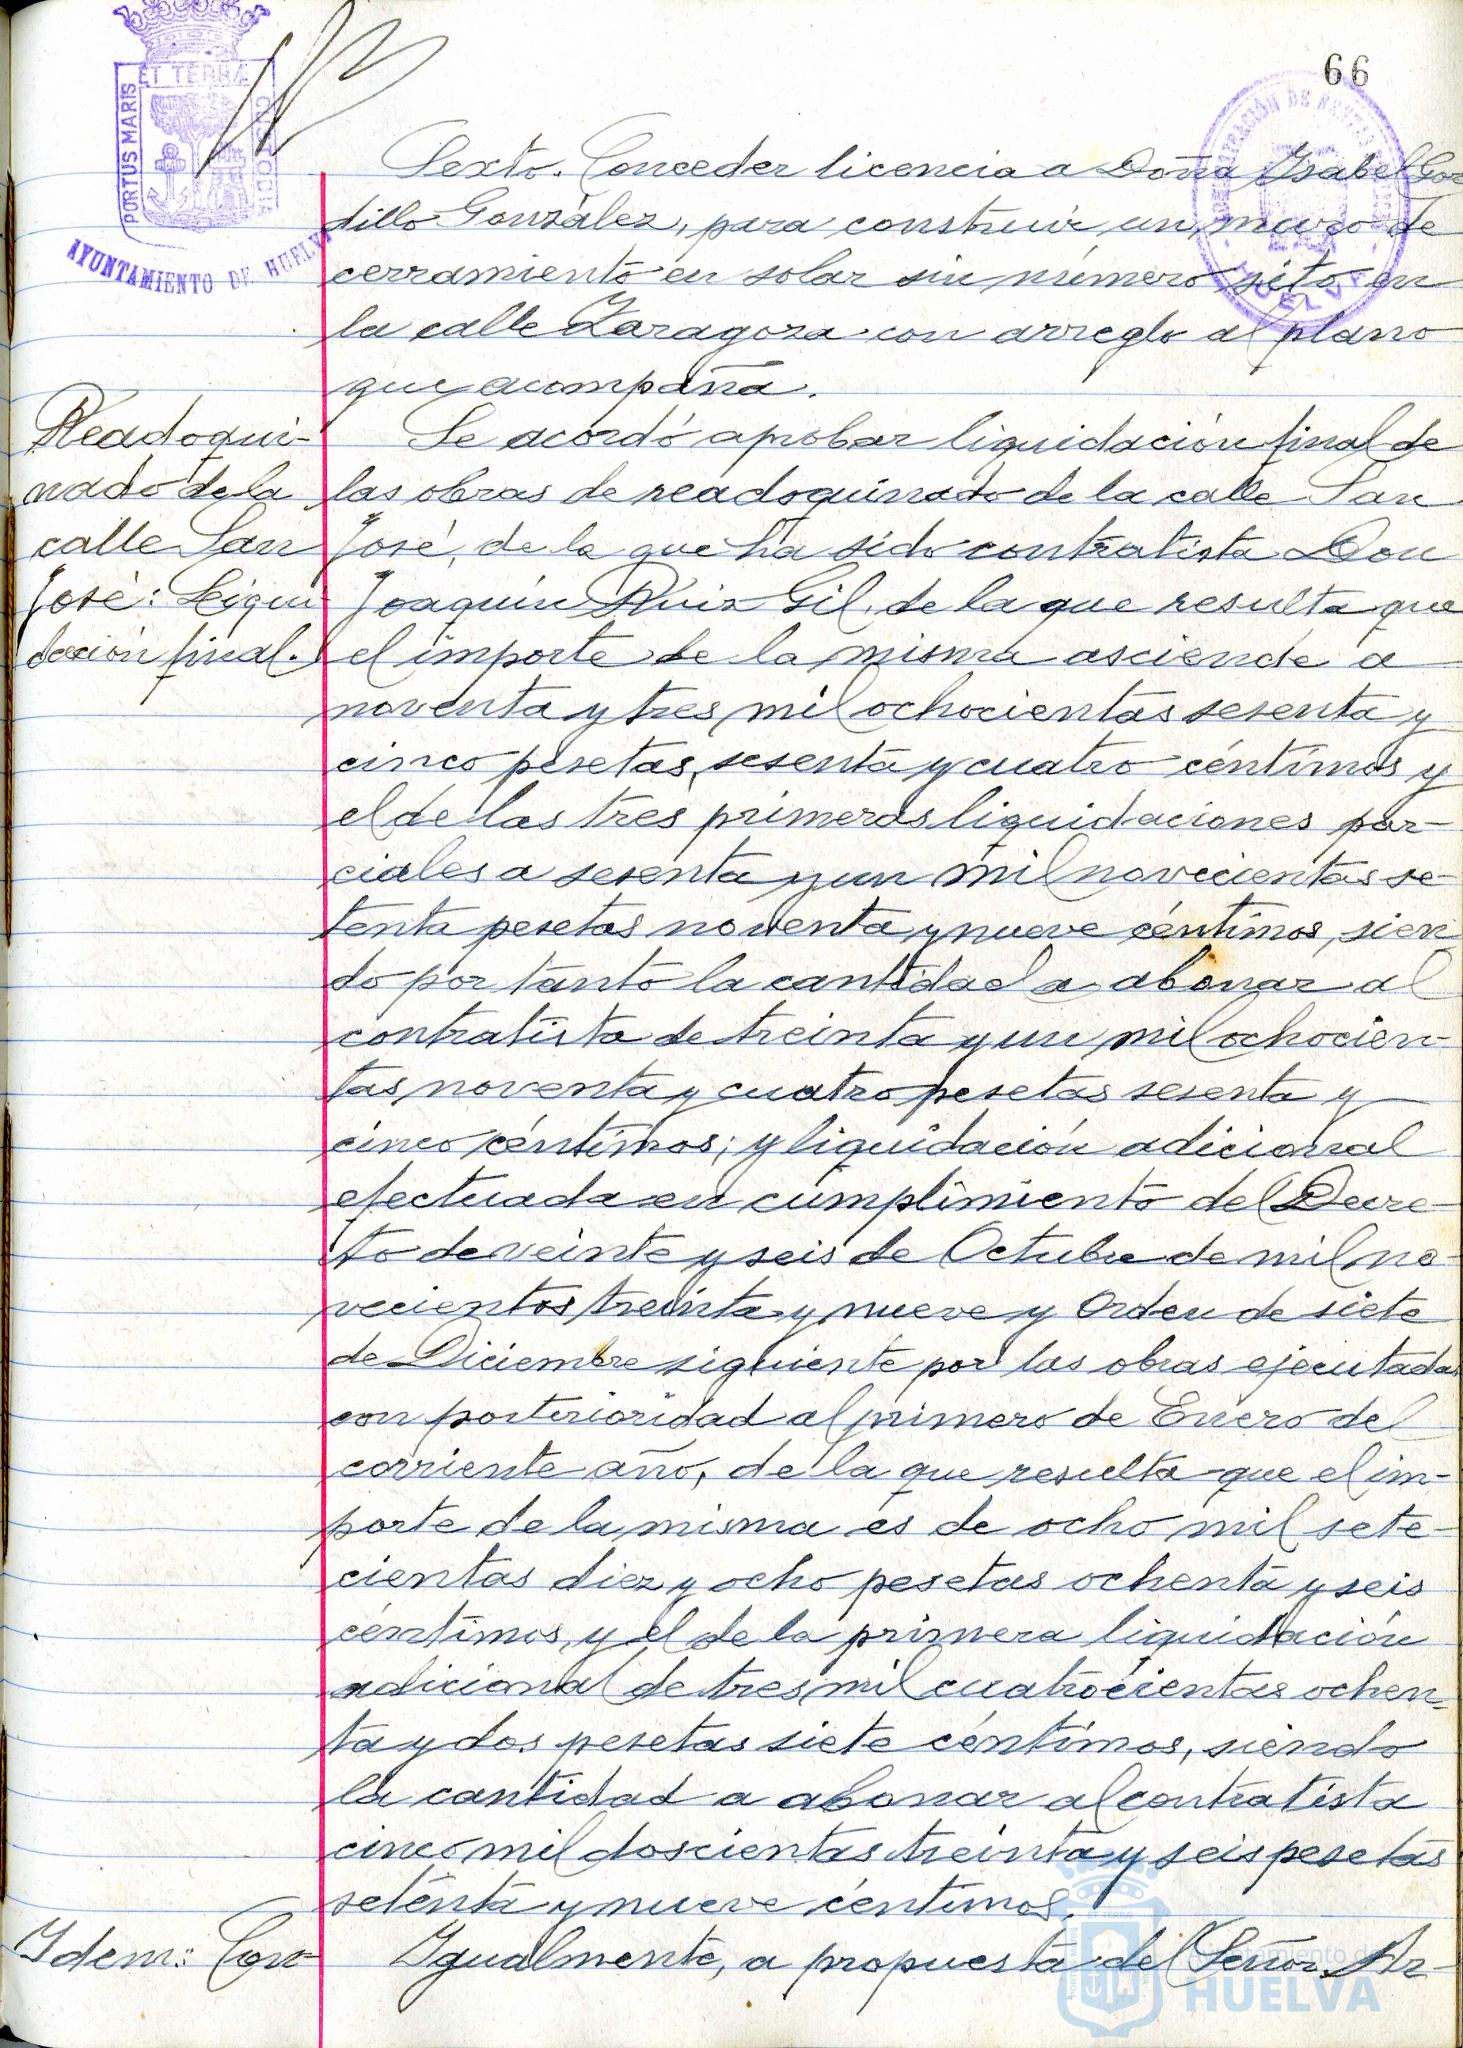 66
PORTUS MARIS
ET TERRÆ
CUSTODIA
AYUNTAMIENTO DE HUELVA
HUELVA
Sexto. Conceder licencia a Doña Ysabel Gor
dillo González, para construir un muro de
cerramiento en solar sin número sito en
la calle Zaragoza con arreglo al plano
que acompaña.
Readoqui-
nado de la
calle San
José: Liqui
dación final.
Se acordó aprobar liquidación final de
las obras de readoquinado de la calle San
José, de la que ha sido contratista Don
Joaquín Ruiz Gil, de la que resulta que
el importe de la misma asciende a
noventa y tres mil ochocientas sesenta y
cinco pesetas, sesenta y cuatro céntimos y
el de las tres primeras liquidaciones par-
ciales a sesenta y un mil novecientas se-
tenta pesetas noventa y nueve céntimos, sien
do por tanto la cantidad a abonar al
contratista de treinta y un mil ochocien-
tas noventa y cuatro pesetas sesenta y
cinco céntimos; y liquidación adicional
efectuada en cumplimiento del Decre-
to de veinte y seis de Octubre de mil no-
vecientos treinta y nueve y Orden de siete
de Diciembre siguiente por las obras ejecutadas
con posterioridad al primero de Enero del
corriente año, de la que resulta que el im-
porte de la misma es de ocho mil sete-
cientas diez y ocho pesetas ochenta y seis
céntimos, y el de la primera liquidación
adicional de tres mil cuatrocientas ochen-
ta y dos pesetas siete céntimos, siendo
la cantidad a abonar al contratista
cinco mil doscientas treinta y seis pesetas
setenta y nueve céntimos.
Ydem: Con-
Ygualmente, a propuesta del Señor Ar-
Ayuntamiento de
HUELVA